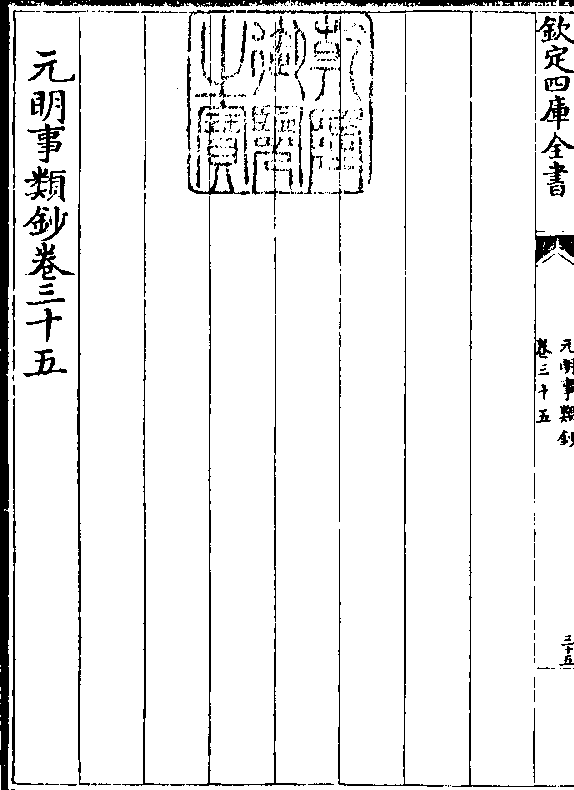 欽定四庫全書
元明事類鈔
卷三十五
三十五
乾隆御覽之寶
元明事類鈔卷三十五